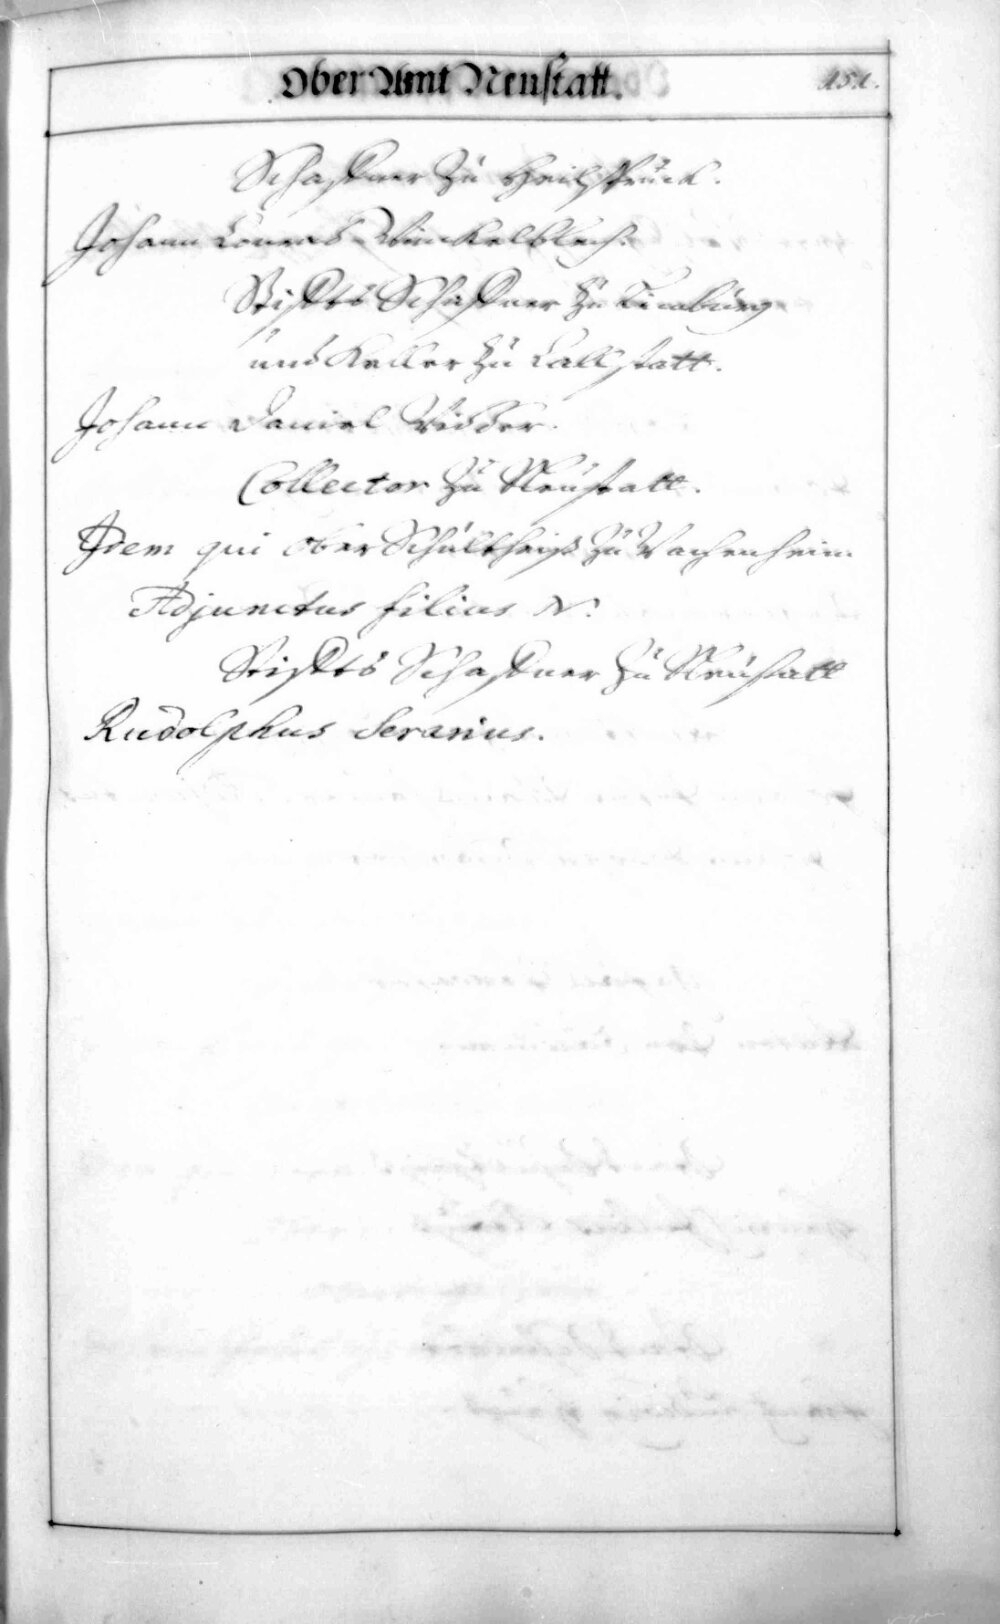 Ober Amt Neustatt. 151.
Schaffner Zu Heilspruck.
Johann Conrad Winckelblech.
Stiffts Schaffner Zu Limburg
und Keller Zu Callstatt.
Johann Daniel Widder.
Collector Zu Neustatt.
Idem qui Ober Schultheiß Zu Wachenheim
Adjunctus filius N.
Stiffts Schaffner Zu Neustatt
Rudolphus Serarius.